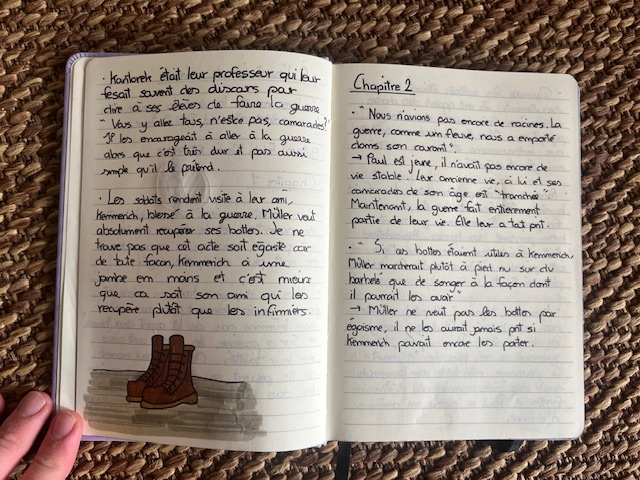 • Kantorek était leur professeur qui leur
fesait souvent des discours par
dire à ses élèves de faire la guerre
" Vous y allez tous, n'est ce pas, camarades?"
Il les encourageait à aller à la guerre
alors que c'est très dur et pas aussi
simple qu'il le prétend.
• Les soldats rendent visite à leur ami,
Kemmerich, blessé à la guerre. Müller veut
absolument récupérer ses bottes. Je ne
trouve pas que cet acte soit égoïste car
de toute façon, Kemmerich à une
jambe en moins et c'est mieux
que ça soit son ami qui les
récupère plutôt que les infirmiers.
Chapitre 2
• " Nous n'avions pas encore de racines. La
guerre, comme un fleuve, nous a emporté
dans son courant".
→ Paul est jeune, il n'avait pas encore de
vie stable. Leur ancienne vie, a lui et ses
camarades de son âge est "tranchée"
Maintenant, la guerre fait entièrement
partie de leur vie. Elle leur a tout prit.
• " Si ces bottes étaient utiles à Kemmerich,
Müller marcherait plutôt à pied nu sur du
barbelé que de songer à la façon dont
il pourrait les avoir".
→ Müller ne veut pas les bottes par
égoïsme, il ne les aurait jamais prit si
Kemmerich pouvait encore les porter.